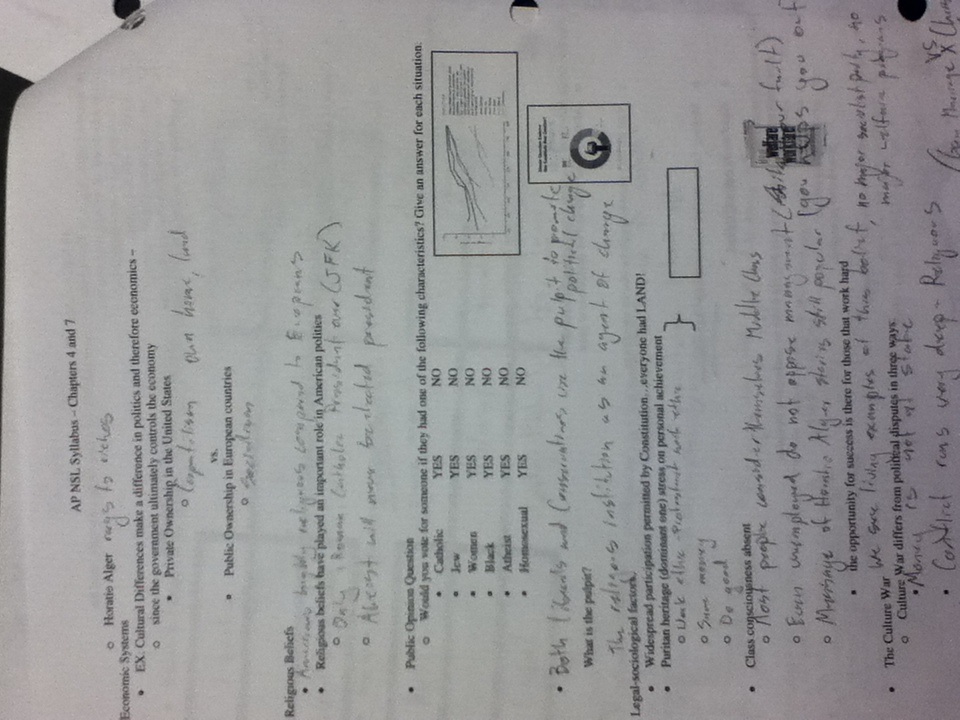 AP NSL Syllabus – Chapters 4 and 7
o Horatio Alger rags to riches
Economic Systems
• EX. Cultural Differences make a difference in politics and therefore economics –
o since the government ultimately controls the economy
• Private Ownership in the United States
o Capitalism own home, land
vs.
• Public Ownership in European countries
o Socialism
Religious Beliefs
• Americans highly religious compared to Europeans
• Religious beliefs have played an important role in American politics
o Only 1 Roman Catholic President ever (JFK)
o Atheist will never be elected president
• Public Opinion Question
o Would you vote for someone if they had one of the following characteristics? Give an answer for each situation:
• Catholic YES NO
• Jew YES NO
• Women YES NO
• Black YES NO
• Atheist YES NO
• Homosexual YES NO
• Both liberals and Conservatives use the pulpit to promote
political change
What is the pulpit?
The religious institution as an agent of change
Legal-sociological factors.
• Widespread participation permitted by Constitution…everyone had LAND!
• Puritan heritage (dominant one) stress on personal achievement
o Work ethic - Protestant work ethic
o Save money
o Do good
• Class consciousness absent
o Most people consider themselves Middle Class
welfare
o Even unemployed do not oppose management ( your fault)
o Message of Horatio Alger stories still popular (you helps you out
• the opportunity for success is there for those that work hard
We see living examples of this belief, no major socialist party, no
major welfare programs
• The Culture War
o Culture War differs from political disputes in three ways:
• Money is not at stake
• Conflict runs very deep - Religious
(Gay Marriage VS